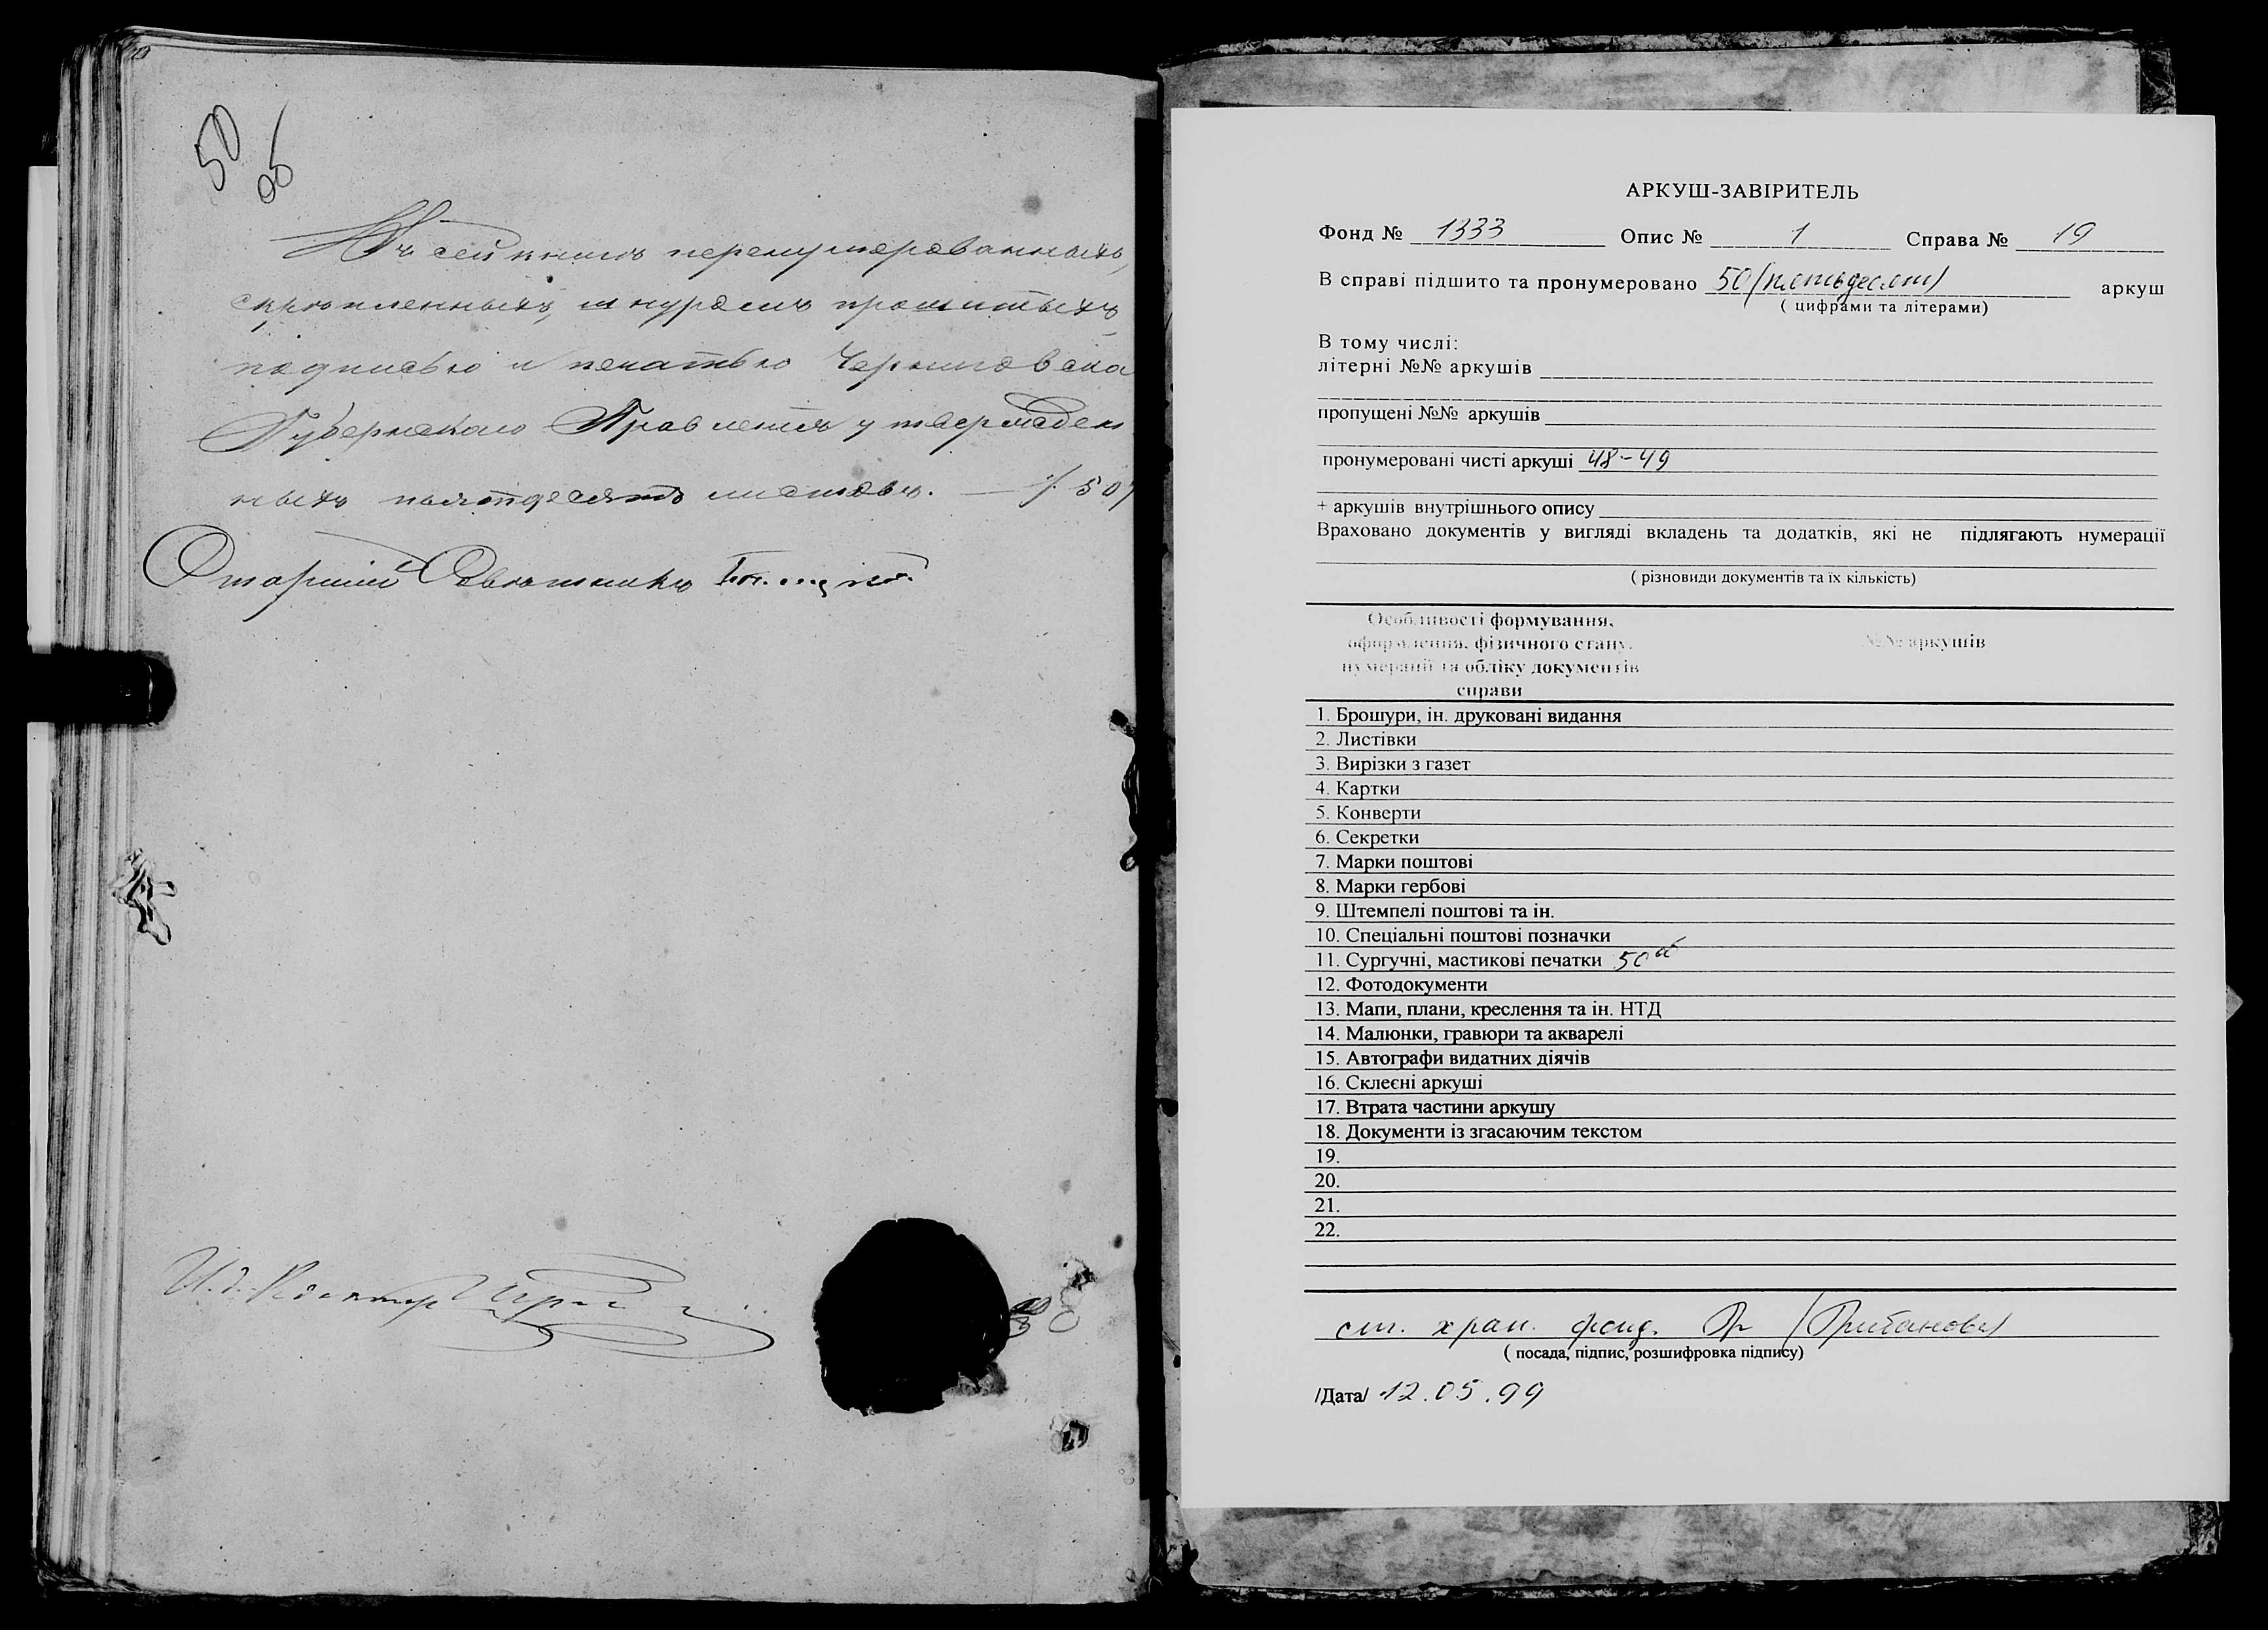 50
об
Въ сей книгѣ перенумерованныхъ,
скрѣпленныхъ, шнуромъ прошитыхъ
подписью и печатью Черниговска
Губернскаго Правленія утвержден
ныхъ пятьдесятъ листовъ. — /50/
Старшій Совѣтникъ
И. д. Редактор
АРКУШ-ЗАВІРИТЕЛЬ
Фонд № 1333 Опис № 1 Справа № 19
В справі підшито та пронумеровано 50 (пятьдесят) аркуш
( цифрами та літерами)
В тому числі:
літерні №№ аркушів
пропущені №№ аркушів
пронумеровані чисті аркуші 48-49
+ аркушів внутрішнього опису
Враховано документів у вигляді вкладень та додатків, які не підлягають нумерації
( різновиди документів та їх кількість)
Особливості формування, 
оформлення, фізичного стану, №№ аркушів
нумерації та обліку документів
справи
1. Брошури, ін. друковані видання
2. Листівки
3. Вирізки з газет
4. Картки
5. Конверти
6. Секретки
7. Марки поштові
8. Марки гербові
9. Штемпелі поштові та ін.
10. Спеціальні поштові позначки
11. Сургучні, мастикові печатки 50 об
12. Фотодокументи
13. Мапи, плани, креслення та ін. НТД
14. Малюнки, гравюри та акварелі
15. Автографи видатних діячів
16. Склеєні аркуші
17. Втрата частини аркушу
18. Документи із згасаючим текстом
19.
20.
21.
22.
ст. хран. фонд. (Грибанова)
( посада, підпис, розшифровка підпису)
/Дата/ 12.05.99